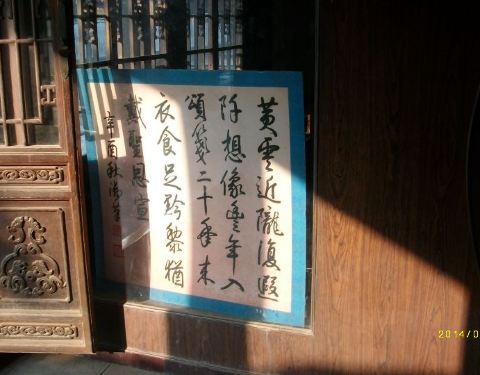 黄云近陇复遐
阡想像丰年入
颂笺二十年来
衣食足黔黎犹
戴圣恩宣
辛酉秋
2014/0